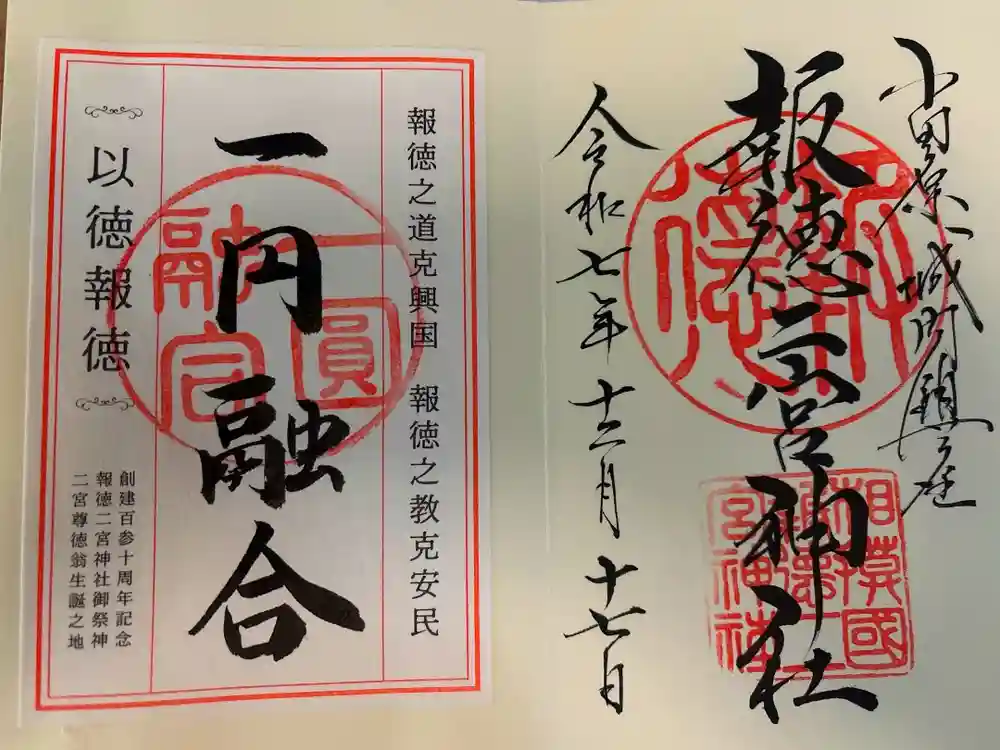 小田原城内鎮座
報徳二宮神社
令和七年十二月十七日
相模國
報徳二
宮神社
報徳
報徳之道克興国 報徳之教克安民
一円融合
一圓
融合
以徳報徳
創建百参十周年記念
報徳二宮神社御祭神
二宮尊徳翁生誕之地